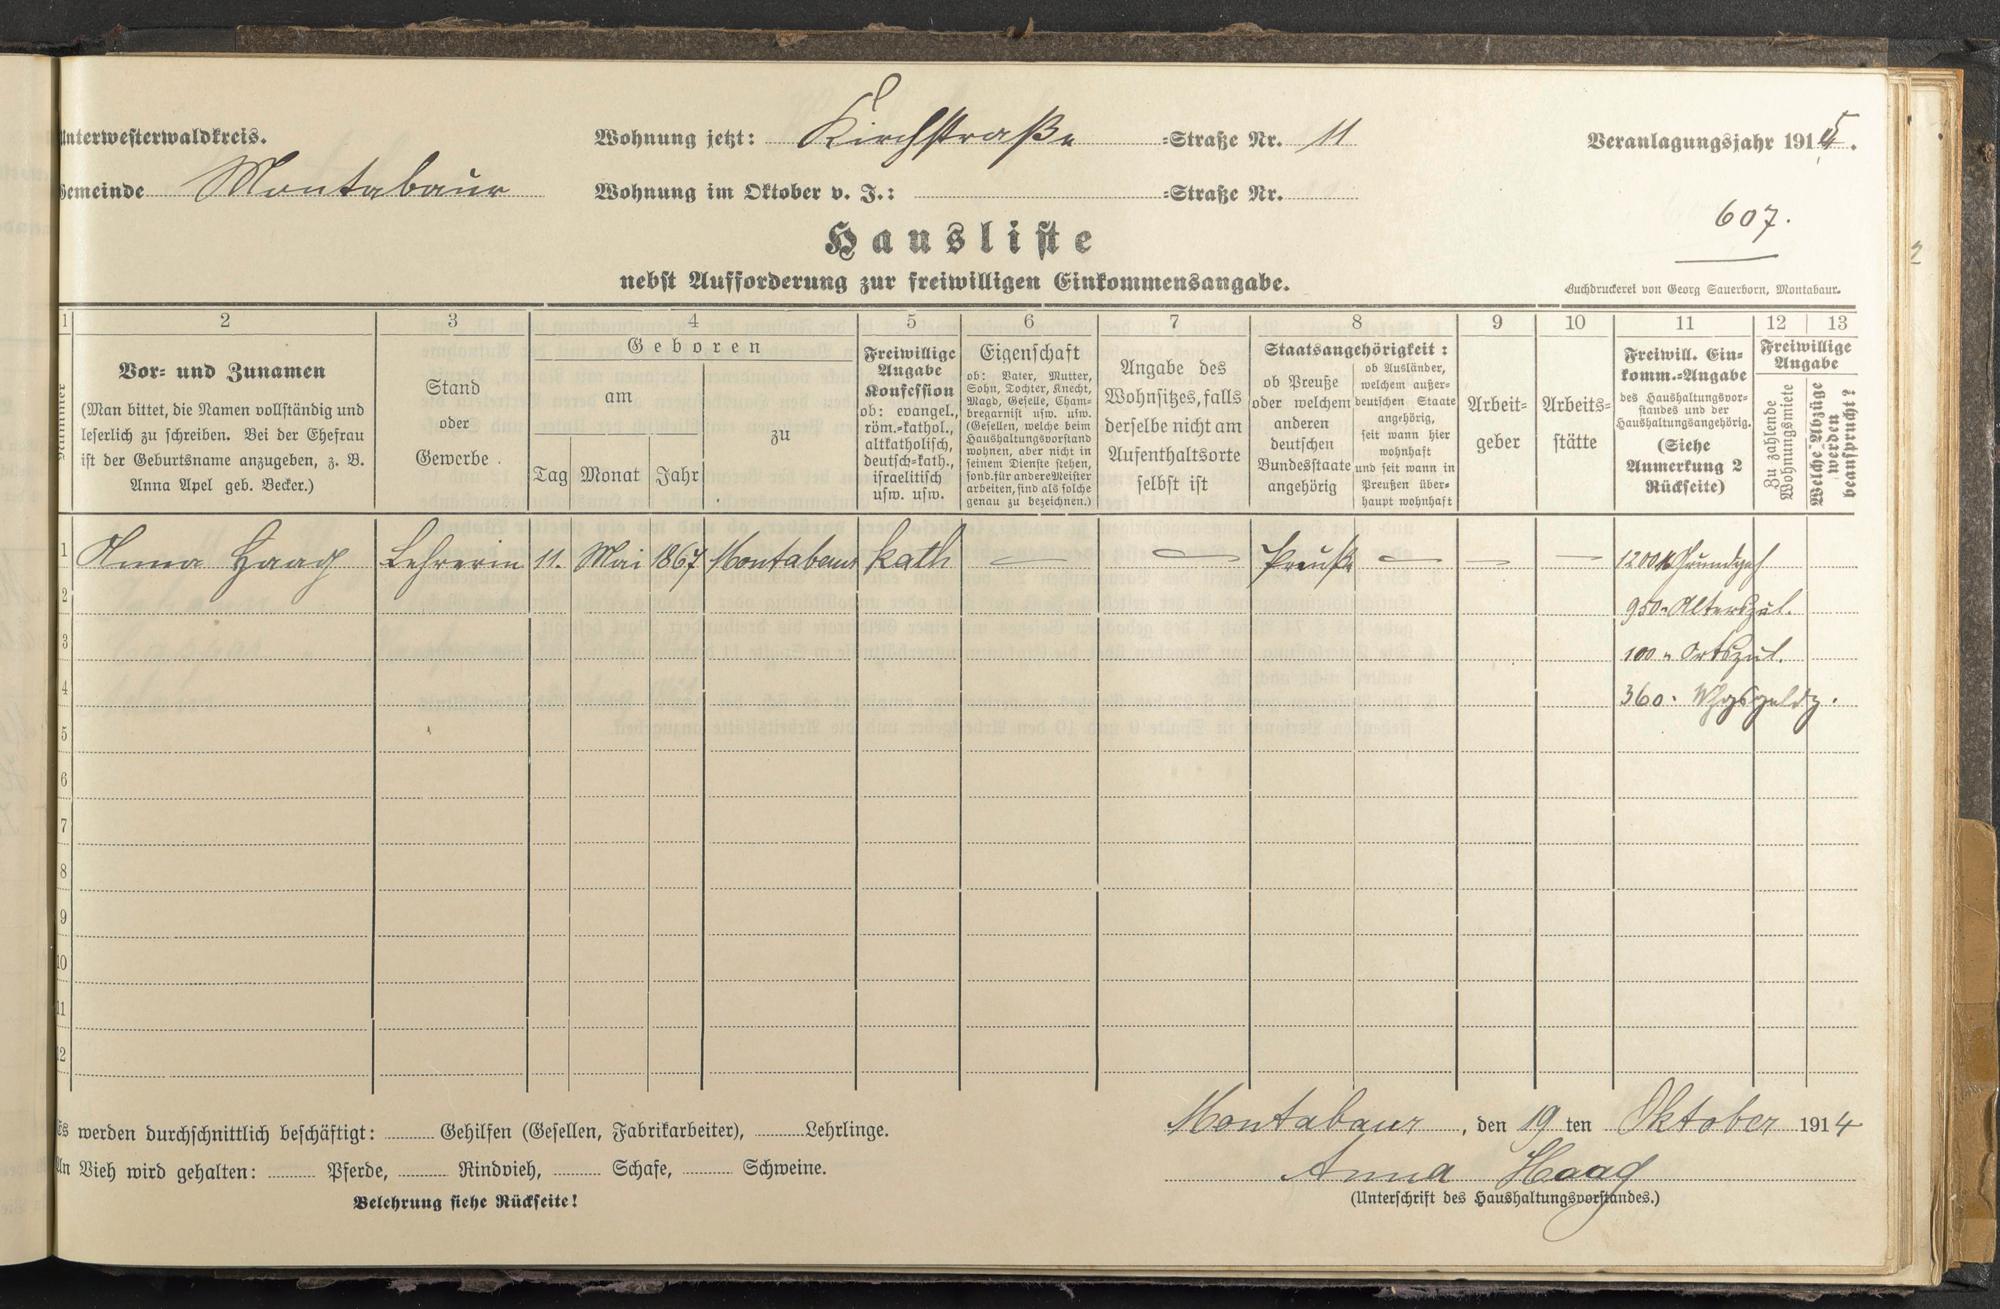 Unterwesterwaldkreis.
Wohnung jetzt: Kirchstraße -Straße Nr. 11
Veranlagungsjahr 1915.
Gemeinde Montabaur
Wohnung im Oktober v. J.: -Straße Nr.
607.
Hausliste
nebst Aufforderung zur freiwilligen Einkommensangabe.
Buchdruckerei von Georg Sauerborn, Montabaur.
1 2 3 4 5 6 7 8 9 10 11 12 13
Nummer
Vor- und Zunamen
(Man bittet, die Namen vollständig und
leserlich zu schreiben. Bei der Ehefrau
ist der Geburtsname anzugeben, z. B.
Anna Apel geb. Becker.)
Stand
oder
Gewerbe
Geboren
am
Tag Monat Jahr
zu
Freiwillige
Angabe
Konfession
ob: evangel.,
röm.-kathol.,
altkatholisch,
deutsch-kath.,
israelitisch
usw. usw.
Eigenschaft
ob: Vater, Mutter,
Sohn, Tochter, Knecht,
Magd, Geselle, Cham-
bregarnist usw. usw.
(Gesellen, welche beim
Haushaltungsvorstand
wohnen, aber nicht in
seinem Dienste stehen,
sond. für andere Meister
arbeiten, sind als solche
genau zu bezeichnen.)
Angabe des
Wohnsitzes, falls
derselbe nicht am
Aufenthaltsorte
selbst ist
Staatsangehörigkeit:
ob Preuße
oder welchem
anderen
deutschen
Bundesstaate
angehörig
ob Ausländer,
welchem außer-
deutschen Staate
angehörig,
seit wann hier
wohnhaft
und seit wann in
Preußen über-
haupt wohnhaft
Arbeit-
geber
Arbeits-
stätte
Freiwill. Ein-
komm.-Angabe
des Haushaltungsvor-
standes und der
Haushaltungsangehörig.
(Siehe
Anmerkung 2
Rückseite)
Freiwillige
Angabe
Zu zahlende
Wohnungsmiete
Welche Abzüge
werden
beansprucht?
1 Anna Haag Lehrerin 11. Mai 1867 Montabaur kath — — Preuße — — — 1200 M Grundgeh
2 950 " Alterszul.
3 100 " Ortszul.
4 360 " Whgsgeldz.
5
6
7
8
9
10
11
12
Es werden durchschnittlich beschäftigt: Gehilfen (Gesellen, Fabrikarbeiter), Lehrlinge.
An Vieh wird gehalten: Pferde, Rindvieh, Schafe, Schweine.
Belehrung siehe Rückseite!
Montabaur, den 19 ten Oktober 1914
Anna Haag
(Unterschrift des Haushaltungsvorstandes.)